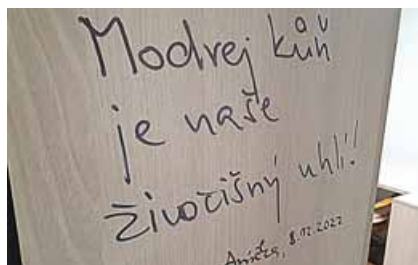 Modrej kůň
je naše
živočišný uhlí!
Anička, 8.12.2022